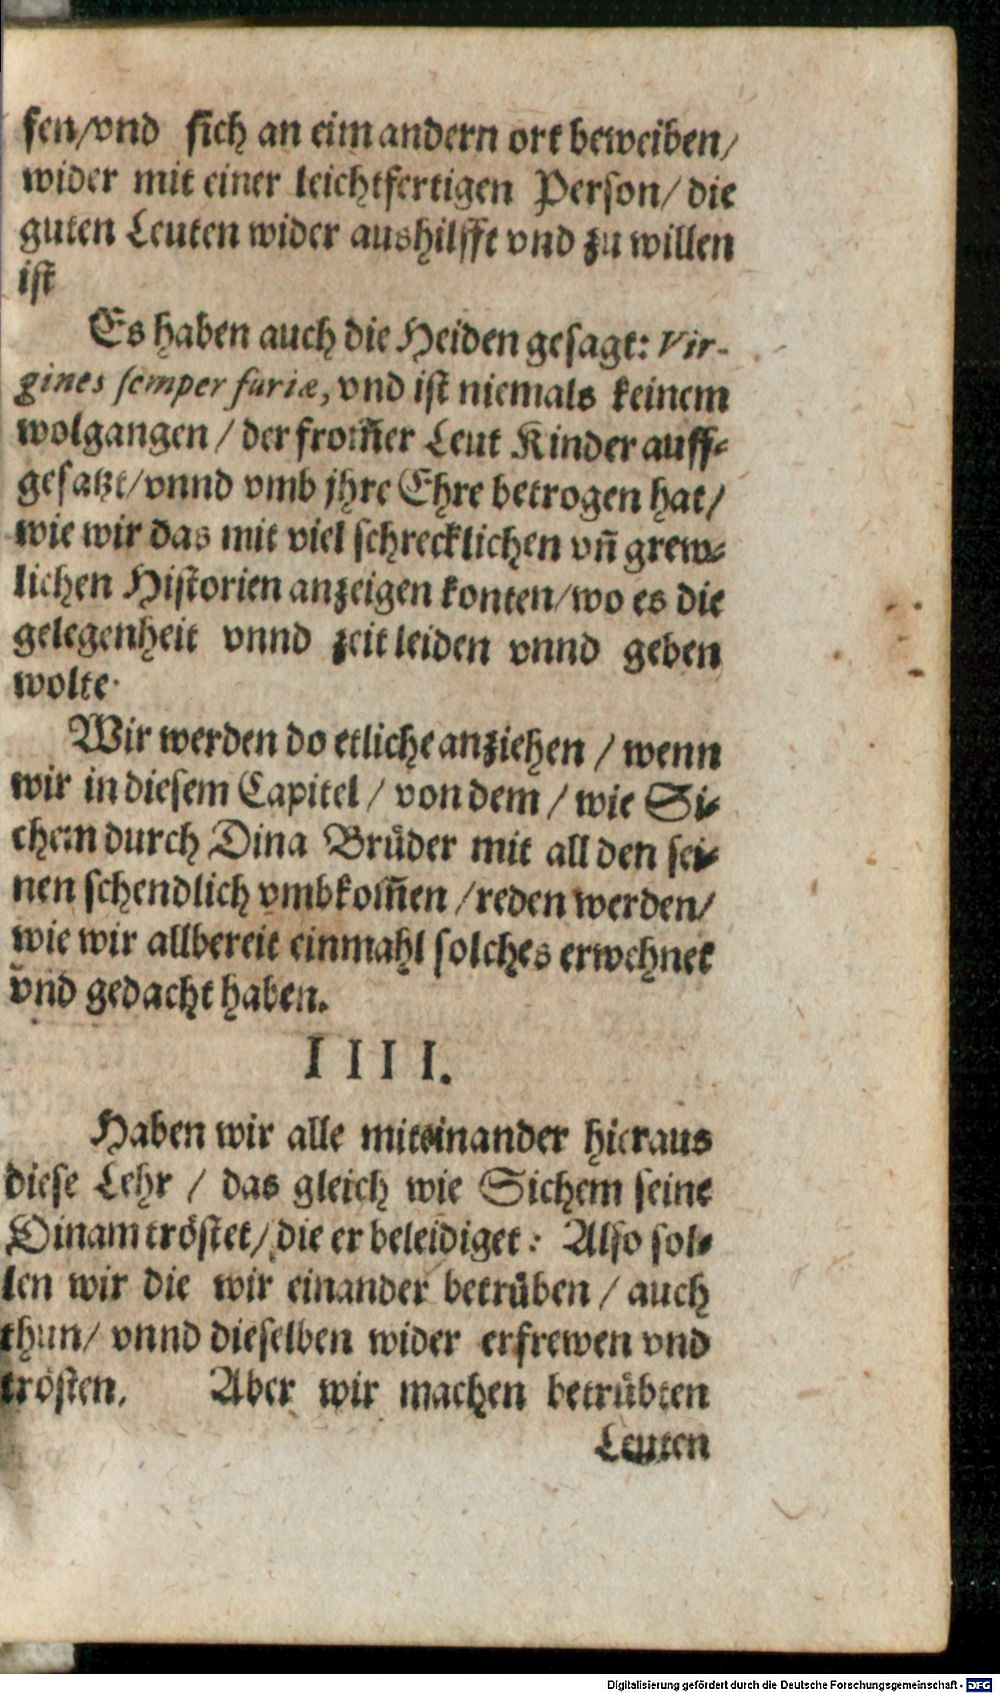 sen/vnd sich an eim andern ort beweiben/
wider mit einer leichtfertigen Person/ die
guten Leuten wider aushilfft vnd zu willen
ist
Es haben auch die Heiden gesagt: Vir-
gines semper furiæ, vnd ist niemals keinem
wolgangen / der from̃er Leut Kinder auff-
gesatzt/vnnd vmb jhre Ehre betrogen hat/
wie wir das mit viel schrecklichen vñ grew-
lichen Historien anzeigen konten/wo es die
gelegenheit vnnd zeit leiden vnnd geben
wolte.
Wir werden do etliche anziehen / wenn
wir in diesem Capitel / von dem / wie Si-
chem durch Dina Brüder mit all den sei-
nen schendlich vmbkom̃en /reden werden/
wie wir allbereit einmahl solches erwehnet
vnd gedacht haben.
I I I I.
Haben wir alle miteinander hieraus
diese Lehr / das gleich wie Sichem seine
Dinam tröstet/ die er beleidiget: Also sol-
len wir die wir einander betrüben / auch
thun/ vnnd dieselben wider erfrewen vnd
trösten. Aber wir machen betrübten
Leuten
Digitalisierung gefördert durch die Deutsche Forschungsgemeinschaft - DFG